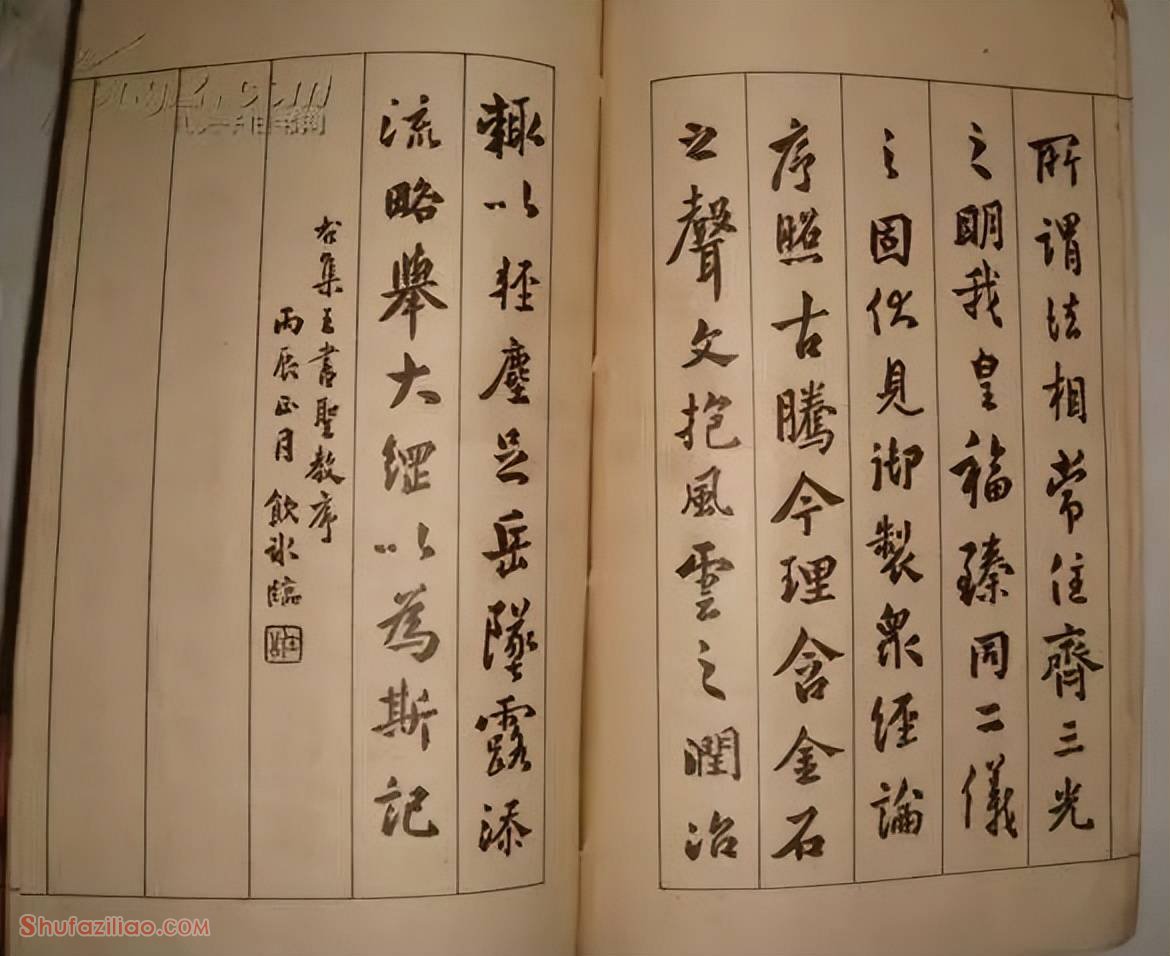 所謂法相常住齊三光
之明我皇福臻同二儀
之固伏見御製衆經論
序照古騰今理含金石
之聲文抱風雲之潤治
輙以輕塵足岳墜露添
流略舉大綱以為斯記
右集王書聖教序
丙辰正月 飲冰臨
Shufaziliao.COM